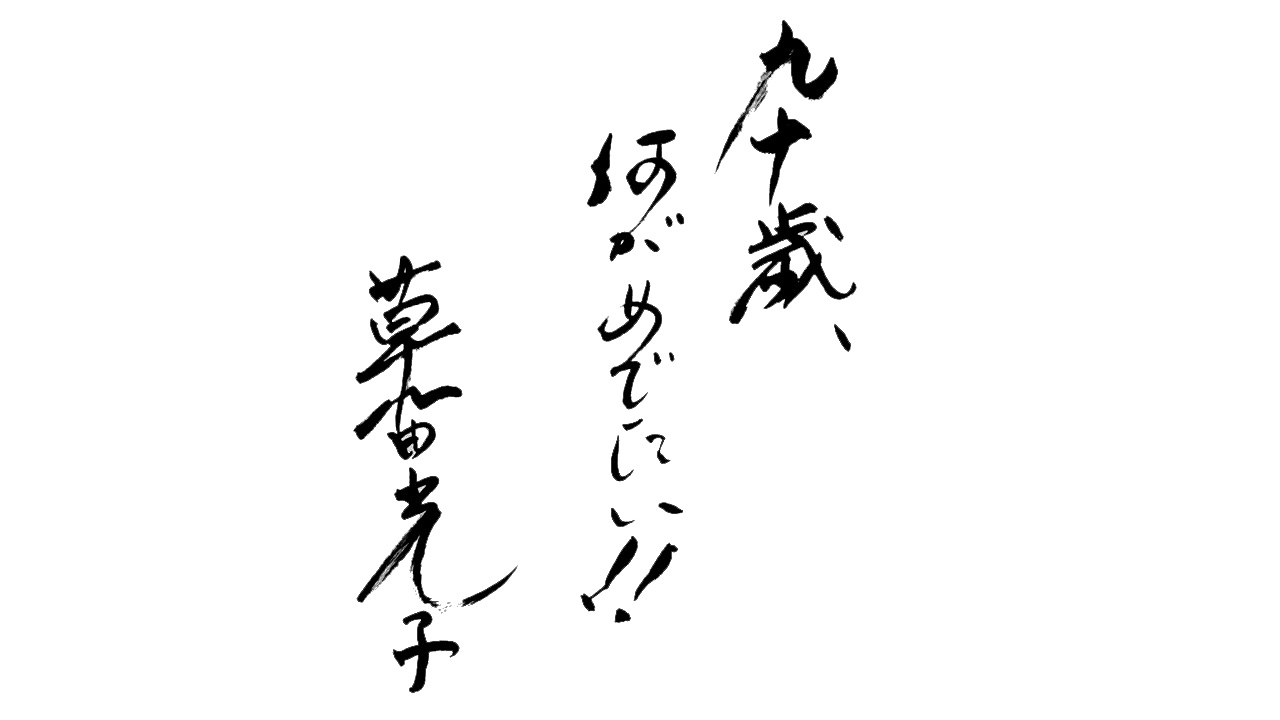 九十歳、
何がめでたい!!
草笛光子